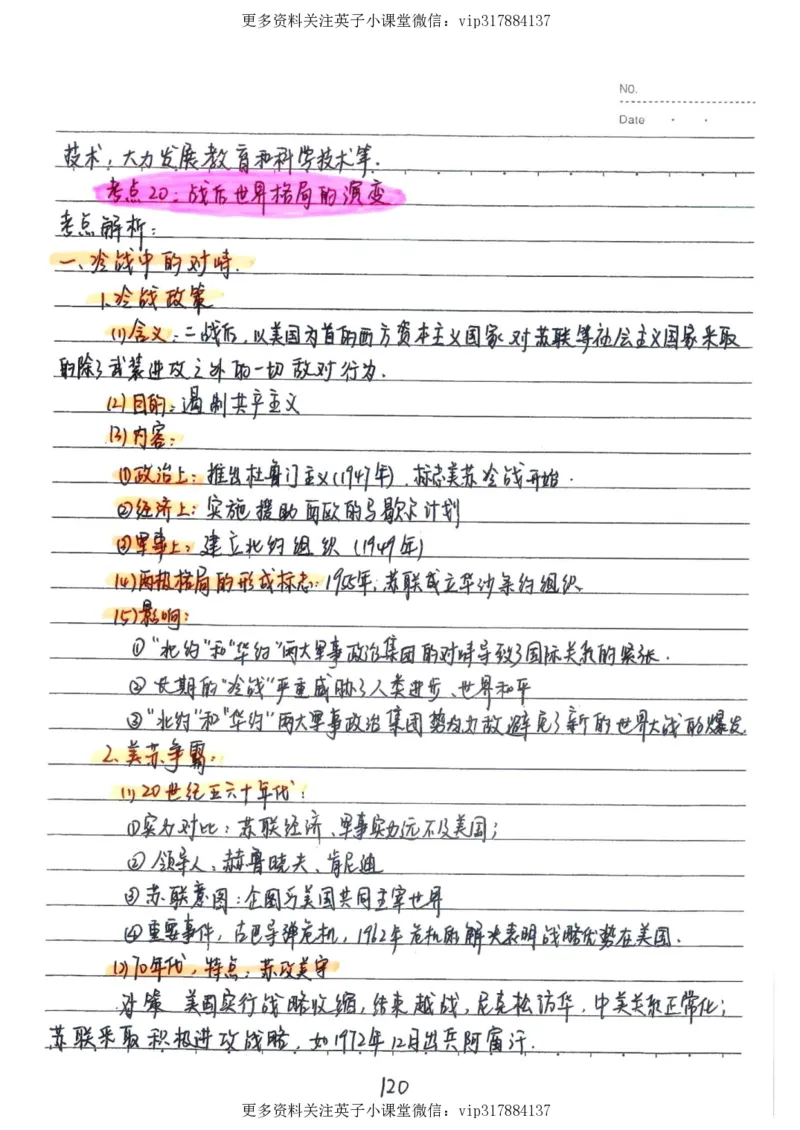 更多资料关注英子小课堂微信：vip317884137
No.
Date
技术，大力发展教育和科学技术等.
考点20：战后世界格局的演变
考点解析：
一、冷战中的对峙.
1.冷战政策
(1)含义：二战后，以美国为首的西方资本主义国家对苏联等社会主义国家采取
的除了武装进攻之外的一切敌对行为.
(2)目的：遏制共产主义
(3)内容：
①政治上：推出杜鲁门主义(1947年)，标志美苏冷战开始.
②经济上：实施援助西欧的马歇尔计划
③军事上：建立北约组织(1949年)
(4)两极格局的形成标志：1955年，苏联成立华沙条约组织
(5)影响：
①"北约"和"华约"两大军事政治集团的对峙导致了国际关系的紧张.
②长期的"冷战"严重威胁了人类进步、世界和平
③"北约"和"华约"两大军事政治集团势均力敌避免了新的世界大战的爆发.
2.美苏争霸：
(1)20世纪五六十年代：
①实力对比：苏联经济、军事实力远不及美国；
②领导人：赫鲁晓夫、肯尼迪
③苏联意图：企图与美国共同主宰世界
④重要事件，古巴导弹危机，1962年危机的解决表明战略优势在美国.
(2)70年代，特点：苏攻美守
对策 美国实行战略收缩，结束越战，尼克松访华，中美关系正常化；
苏联采取积极进攻战略，如1972年12月出兵阿富汗.
120
更多资料关注英子小课堂微信：vip317884137